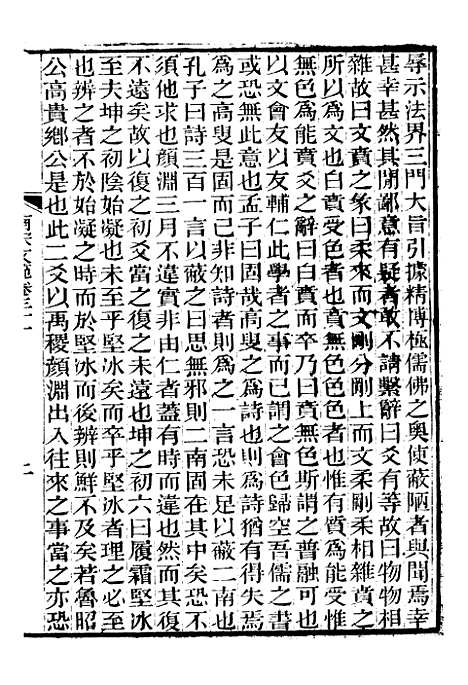 辱示法界三門大旨引據精博極儒佛之奥使蔽陋者與聞焉幸
甚幸甚然其閒鄙意有疑者敢不請繫辭曰爻有等故曰物物相
雜故曰文賁之彖曰柔來而文剛分剛上而文柔剛柔相雜賁之
所以爲文也白賁受色者也無色色者也惟有質爲能受惟
無色爲能賁爻之辭曰白賁而卒乃曰賁無色斯謂之普融可也
以文會友以友輔仁此學者之事而已謂之會色歸空吾儒之書
或恐無此意也孟子曰固哉高叟之爲詩也則爲詩猶有得失焉
爲之高叟是固而已非知詩者則爲之一言恐未足以蔽二南也
孔子曰詩三百一言以蔽之曰思無邪則二南固在其中矣恐不
須他求也顔淵三月不違實非由仁者蓋有時而違也然其復
不遠矣故以復之初爻當之復之未遠也坤之初六曰履霜堅冰
至夫坤之初陰始凝也未至乎堅冰矣而卒乎堅冰者理之必至
也辨之者不於始凝之時而於堅冰而後辨則鮮不及矣若魯昭
公高貴鄉公是也此二爻以禹稷顔淵出入往來之事當之亦恐
南宋文範卷三十一
二